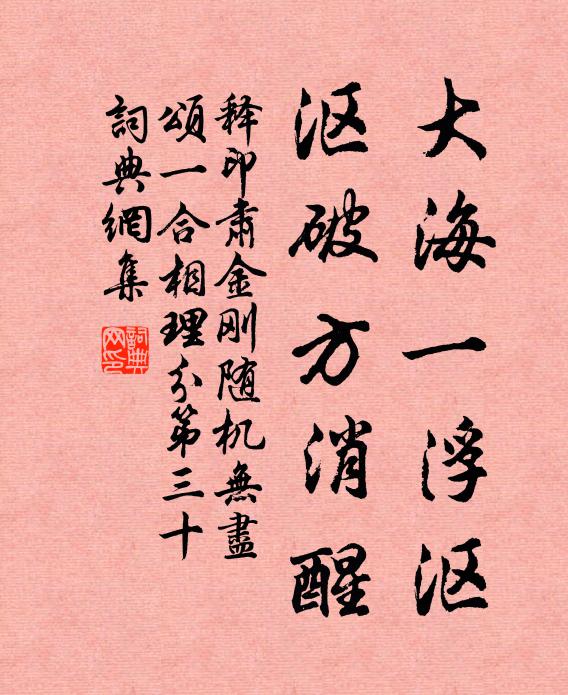 大海一浮沤
沤破方消醒
释印肃金刚随机無盡
頌一合相理分第三十
詞典網集
詞典网印